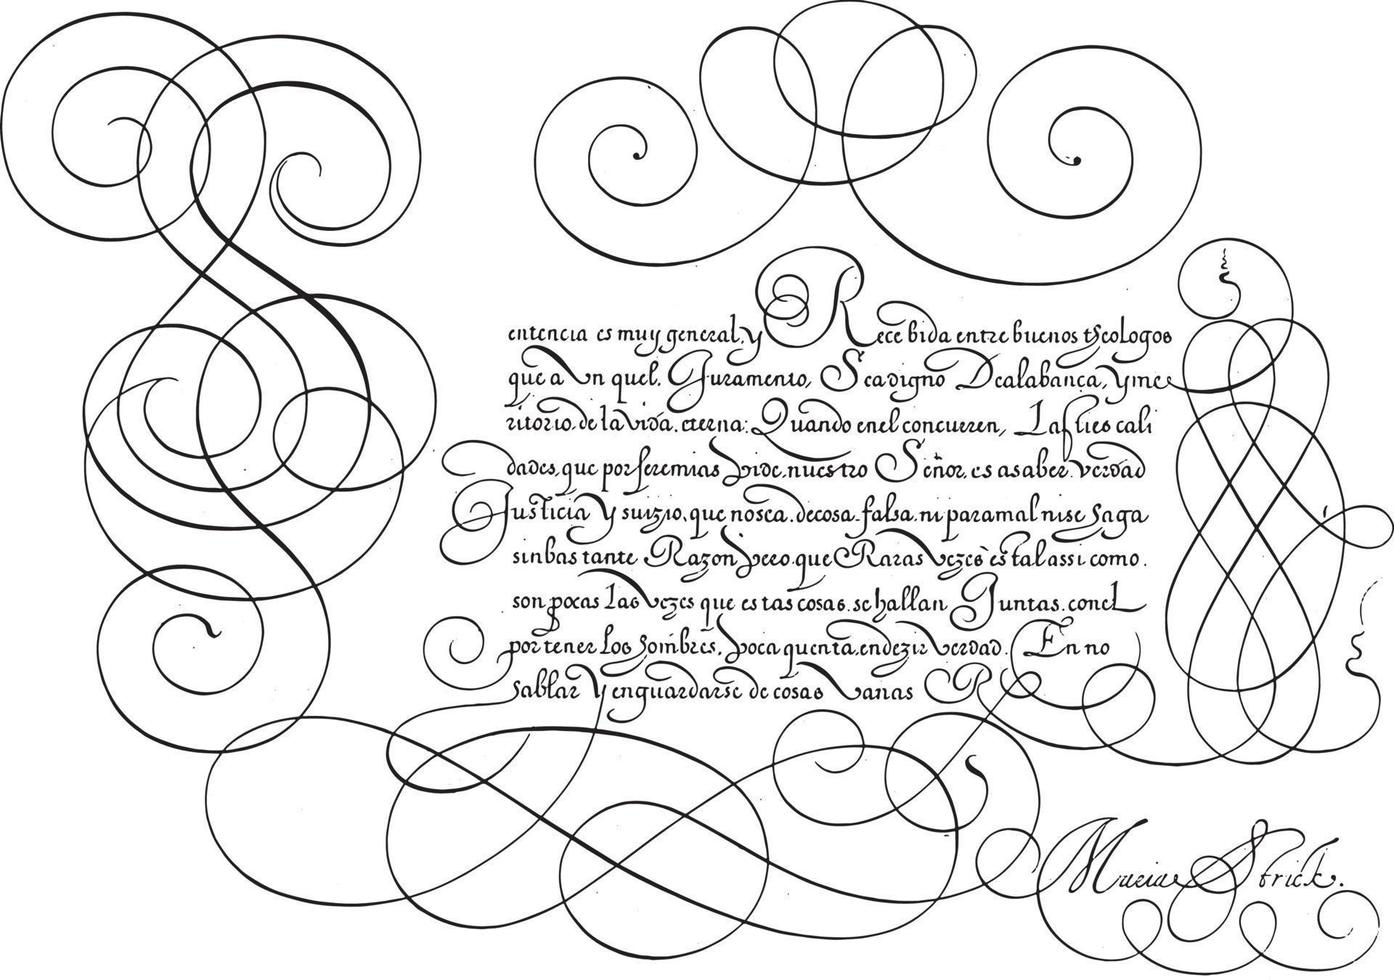 Sentencia es muy general, y Recebida entre buenos theologos
que a un quel. Juramento, Sea digno De alabança, y me
ritorio de la vida. eterna: Quando en el concueren, Las tres cali
dades, que por Jeremias pide, nuestro Señor. es a saber. verdad
Justicia y suizio, que no sea. de cosa. falsa. ni para mal ni se haga
sin bastante Razon pero que Raras vezes es tal assi como.
son pocas las vezes que estas cosas. se hallan Juntas. con el
por tener los hombres, poca quenta, en dezir verdad. En no
hablar y en guardarse de cosas vanas R
Maria Strick.